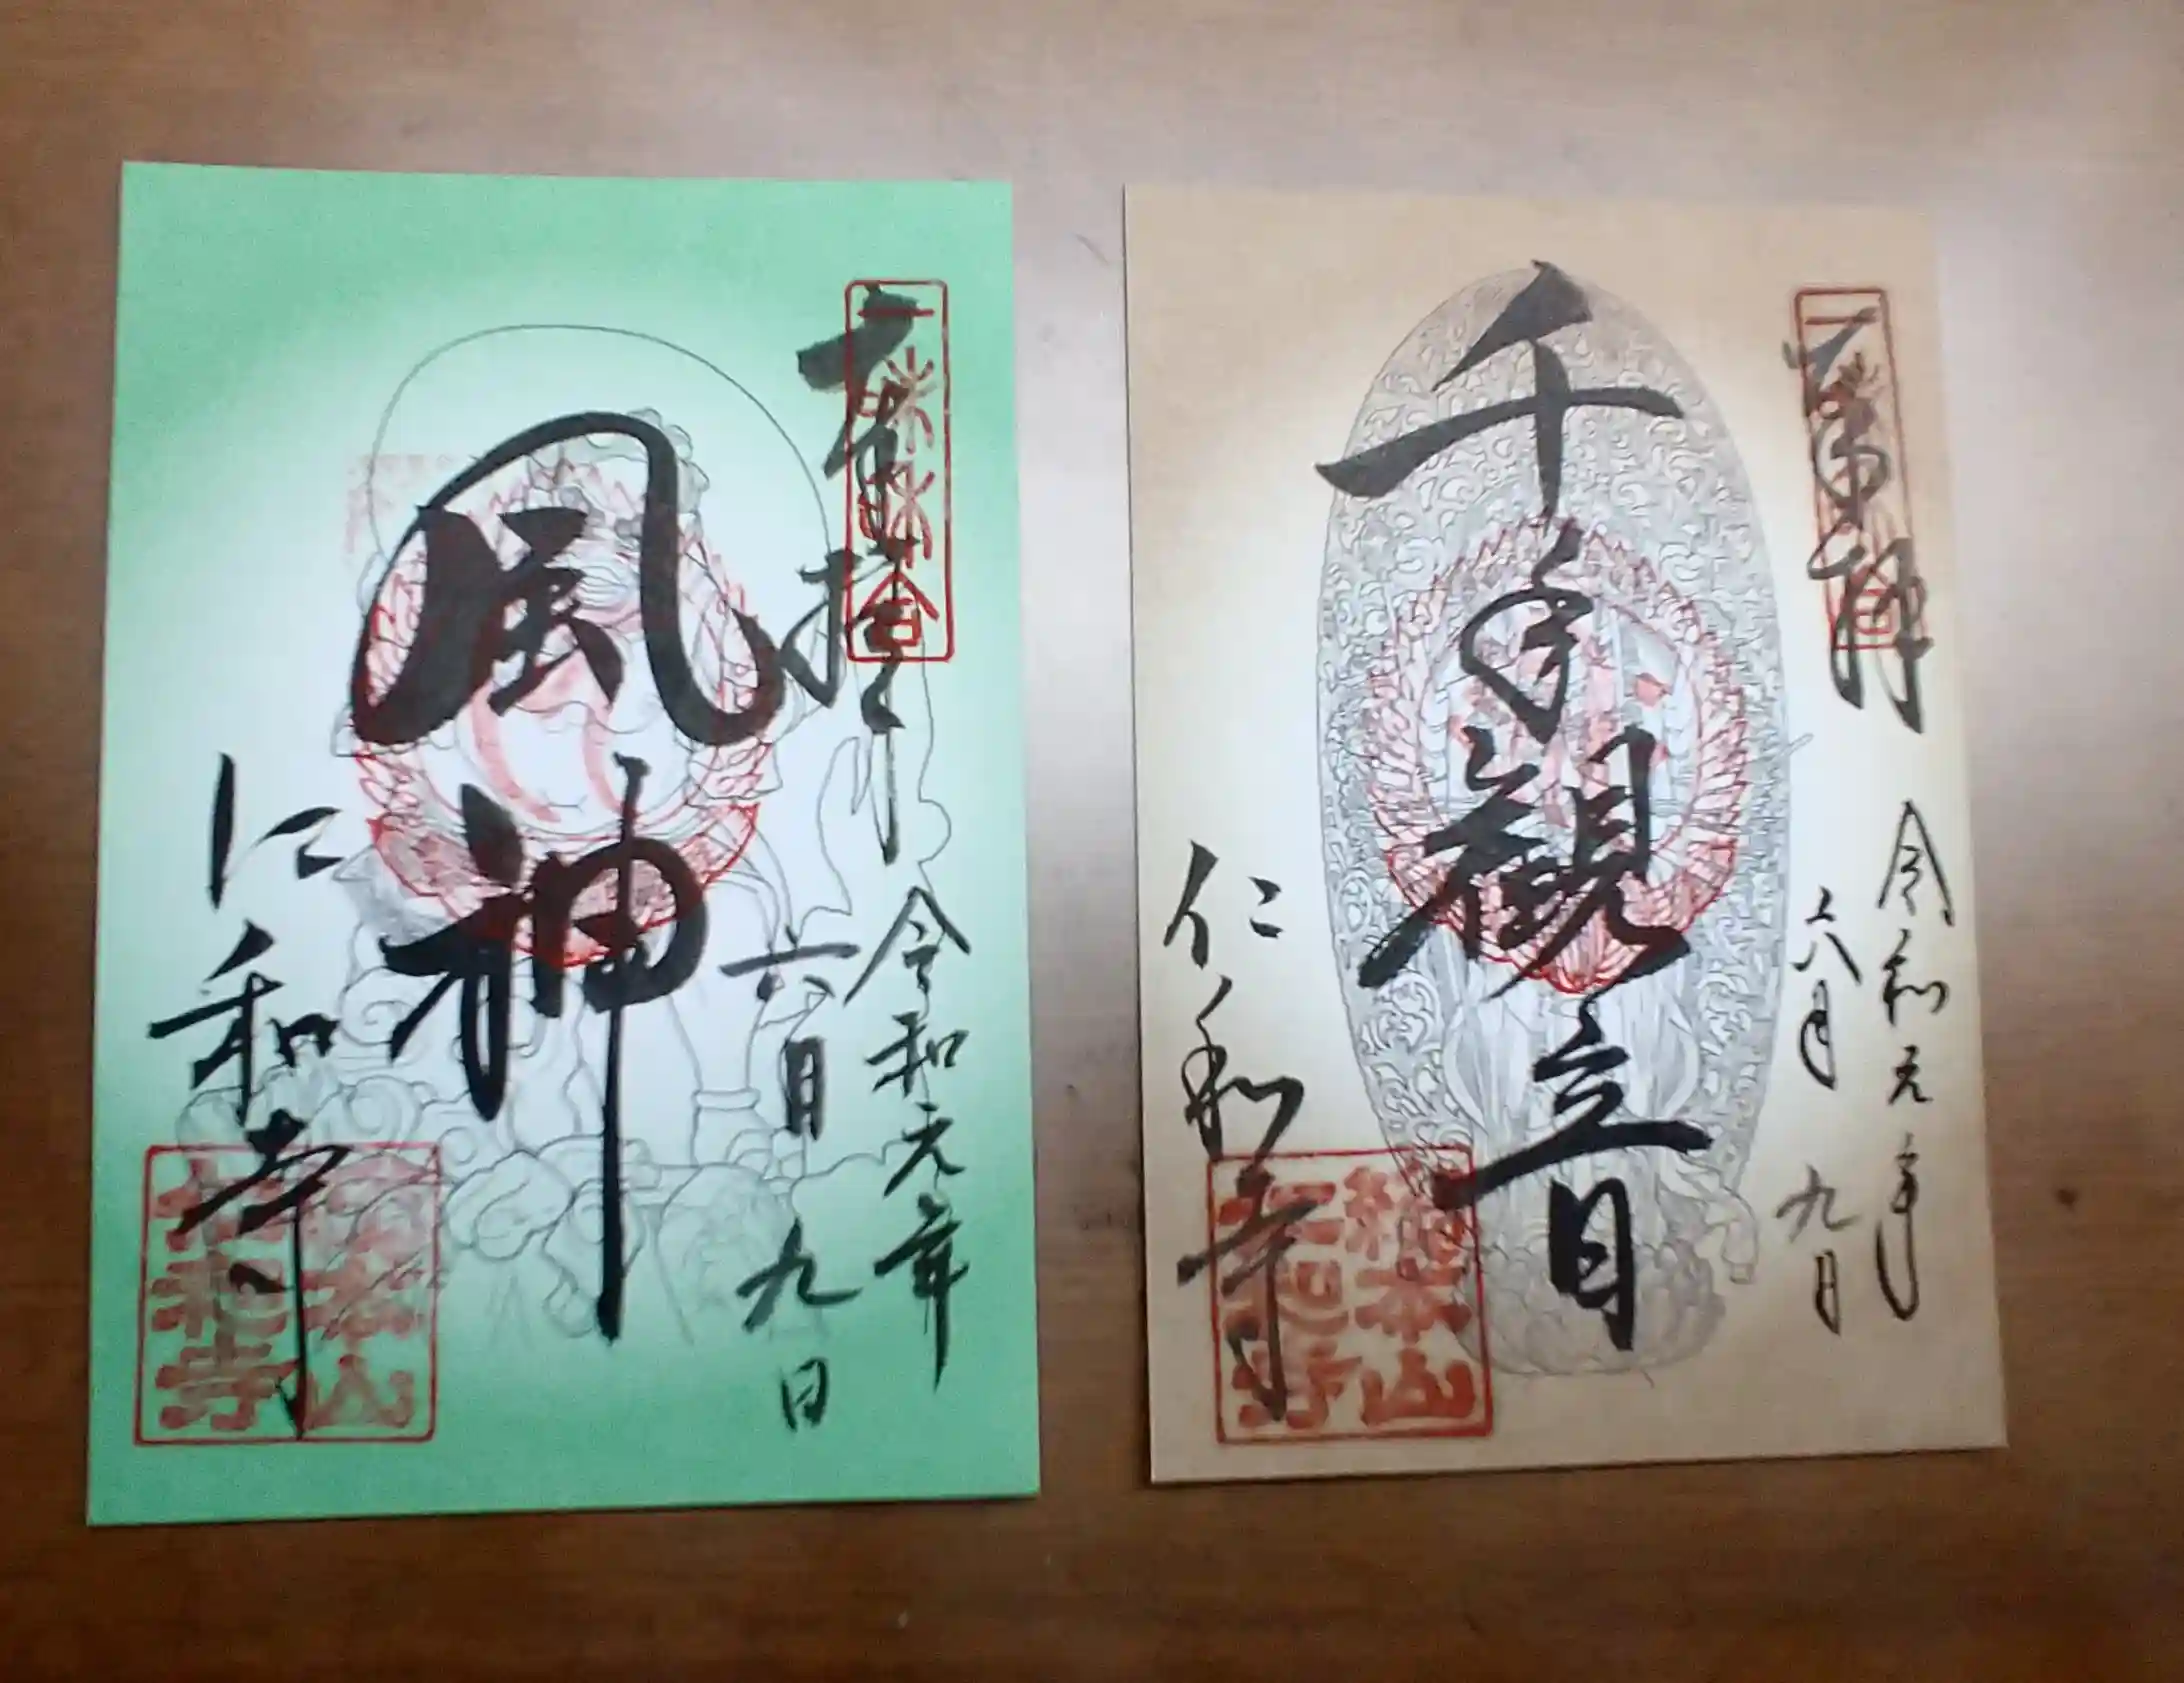 奉拝
令和元年
六月九日
風神
仁和寺
総本山
仁和寺
奉拝
令和元年
六月九日
千手観音
仁和寺
総本山
仁和寺